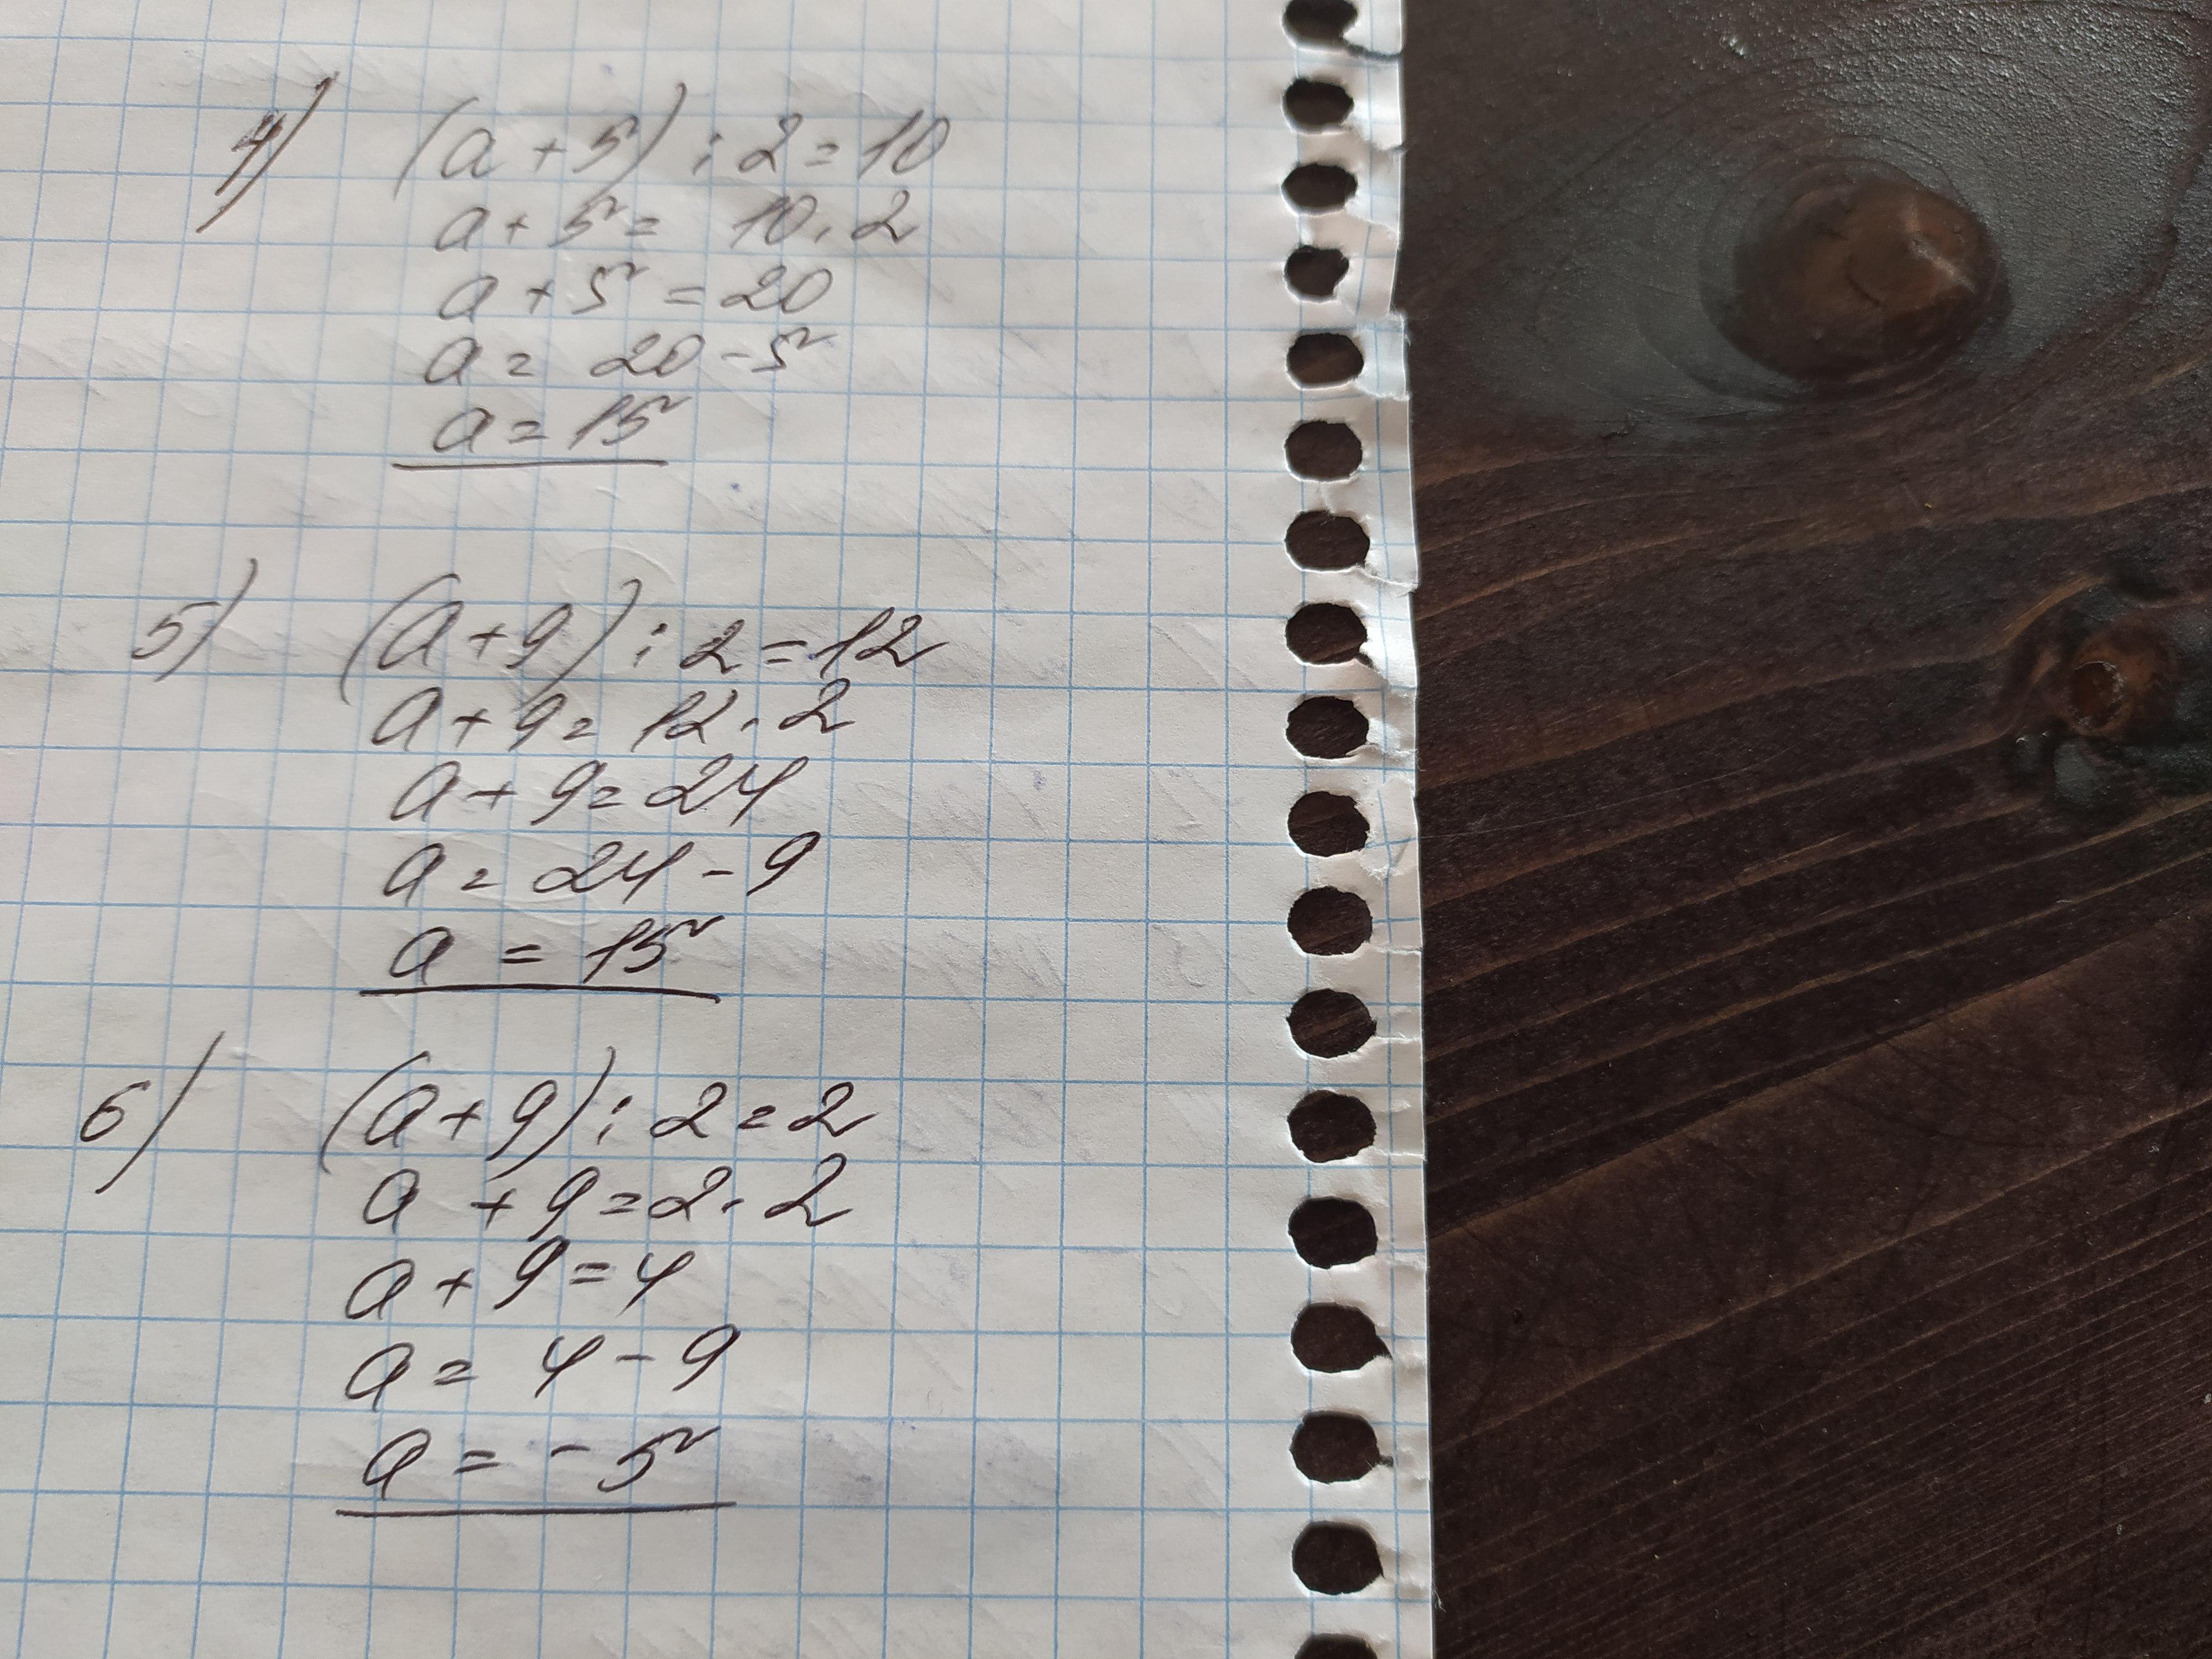 4) (a+5):2=10
a+5= 10·2
a+5=20
a= 20-5
a=15
5) (a+9):2=12
a+9=12·2
a+9=24
a=24-9
a=15
6) (a+9):2=2
a+9=2·2
a+9=4
a=4-9
a=-5